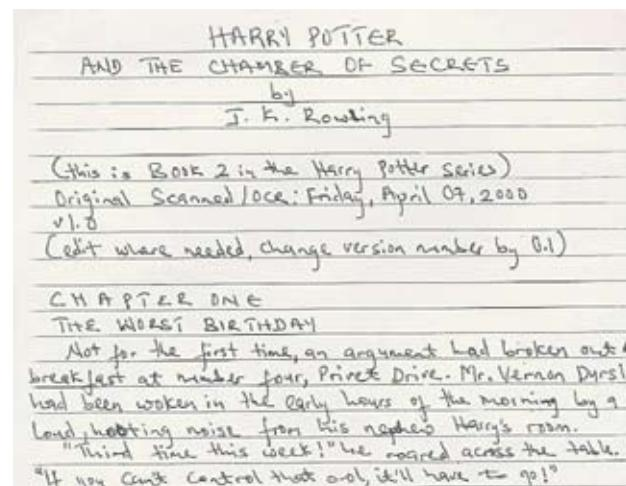 HARRY POTTER
AND THE CHAMBER OF SECRETS
by
J. K. Rowling
(this is Book 2 in the Harry Potter Series)
Original Scanned/OCR: Friday, April 07, 2000
v1.0
(edit where needed, change version number by 0.1)
CHAPTER ONE
THE WORST BIRTHDAY
Not for the first time, an argument had broken out
breakfast at number four, Privet Drive. Mr. Vernon Dursl
had been woken in the early hours of the morning by a
loud, hooting noise from his nephew Harry's room.
"Third time this week!" he roared across the table.
"If you can't control that owl, it'll have to go!"